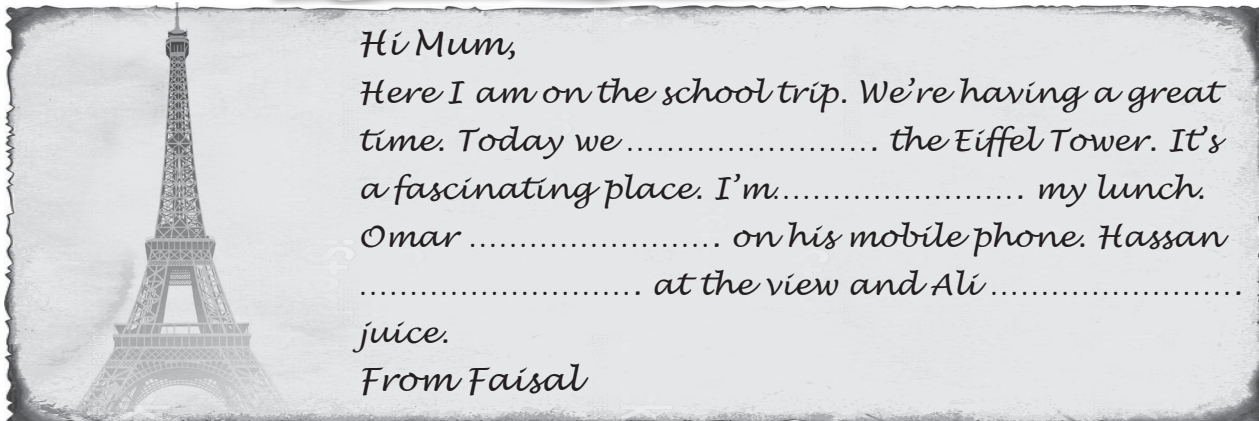 Hi Mum,
Here I am on the school trip. We're having a great
time. Today we ......................... the Eiffel Tower. It's
a fascinating place. I'm......................... my lunch.
Omar ......................... on his mobile phone. Hassan
............................ at the view and Ali .........................
juice.
From Faisal